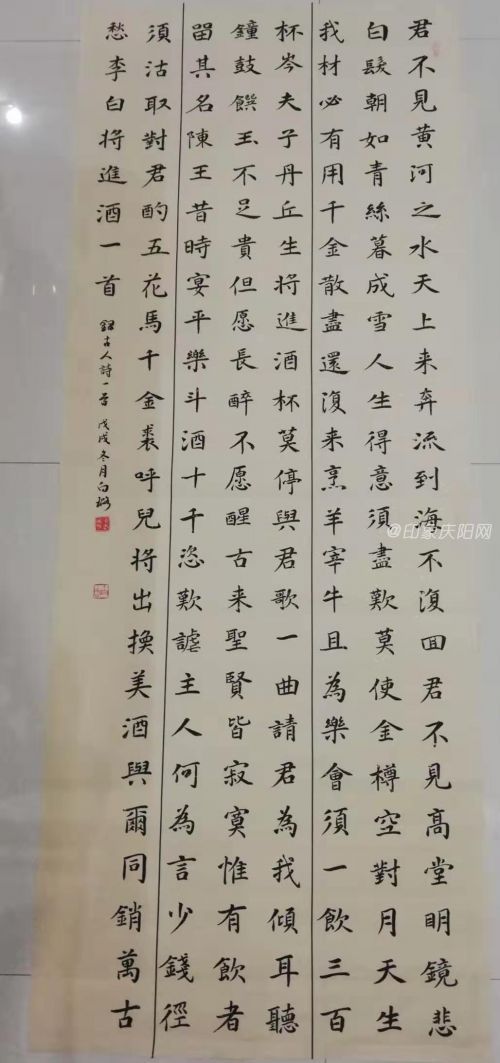 君不見黃河之水天上来奔流到海不復回君不見高堂明鏡悲
白髮朝如青絲暮成雪人生得意須盡歡莫使金樽空對月天生
我材必有用千金散盡還復来烹羊宰牛且為樂會須一飲三百
杯岑夫子丹丘生将進酒杯莫停與君歌一曲請君為我傾耳聽
鐘鼓饌玉不足貴但愿長醉不愿醒古来聖賢皆寂寞惟有飲者
留其名陳王昔時宴平樂斗酒十千恣歡謔主人何為言少錢徑
須沽取對君酌五花馬千金裘呼兒将出換美酒與爾同銷萬古
愁李白将進酒一首
古人詩一首戊戌冬月白
@印象庆阳网